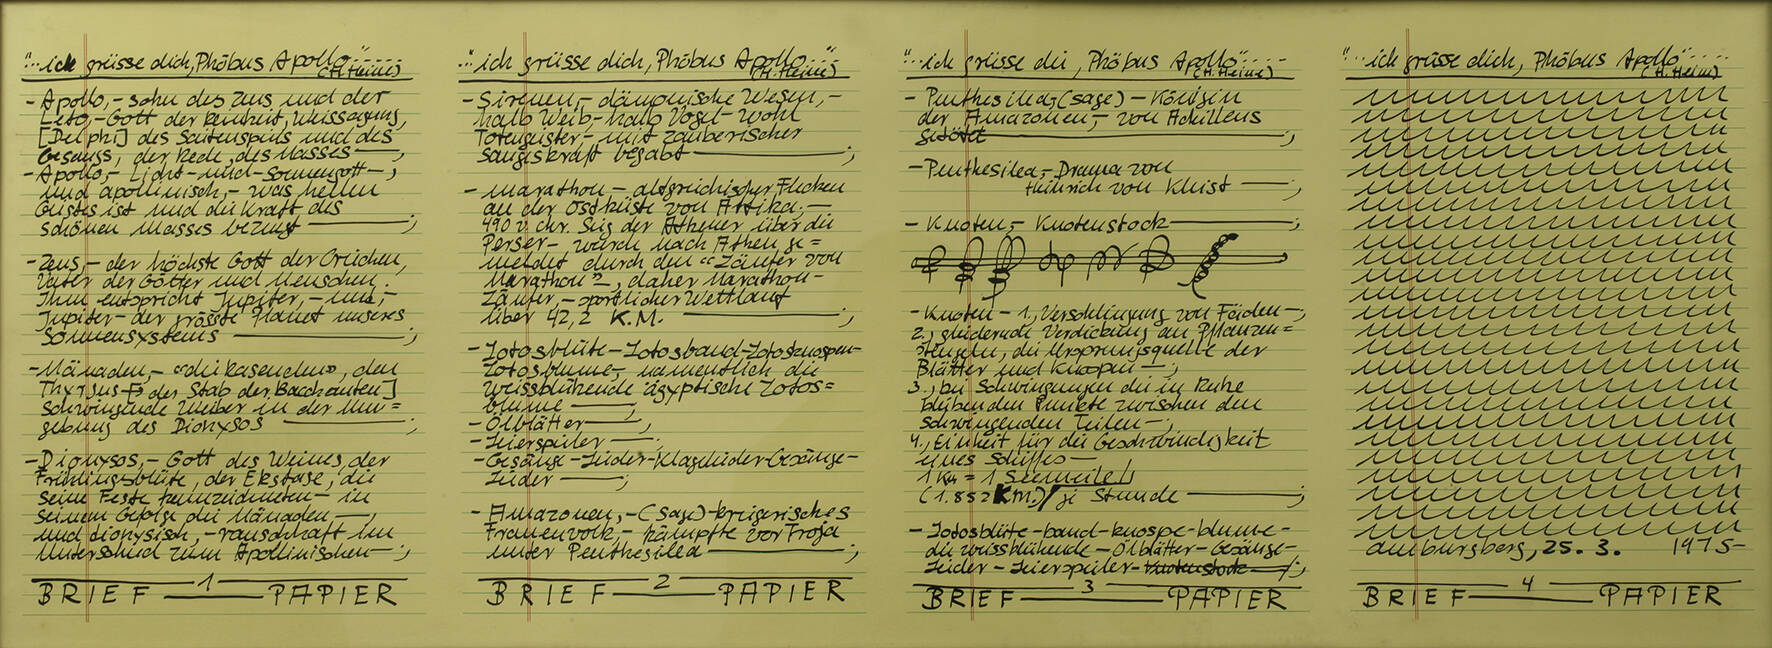 "...ich grüsse dich, Phöbus Apollo"....
(H. Heine)
- Apollo, - sohn des Zeus und der
Leto, - Gott der Reinheit, Weissagung,
[Delphi] des Saitenspiels und des
Gesangs, der Rede, des Masses —;
- Apollo, - Licht - und - Sonnengott -;
und apollinisch, - was hellen
Geistes ist und die Kraft des
schönen Masses bezeugt —;
- Zeus, - der höchste Gott der Griechen,
Vater der Götter und Menschen.
Ihm entspricht Jupiter, - und, -
Jupiter - der grösste Planet unseres
Sonnensystems —;
- Mänaden, - "die Rasenden», den
Thyrsus [der Stab der Bacchanten]
schwingende Weiber in der Um=
gebung des Dionysos —;
- Dionysos, - Gott des Weines, der
Frühlingsblüte, der Ekstase, die
seine Feste kennzeichneten - in
seinem Gefolge die Mänaden —,
und dionysisch, - rauschhaft im
Unterschied zum Apollinischen —;
BRIEF — 1 — PAPIER
"...ich grüsse dich, Phöbus Apollo..."
(H. Heine)
- Sirenen, - dämonische Wesen, -
halb Weib, - halb Vogel - wohl
Totengeister, - mit zauberischer
Sangeskraft begabt —;
- Marathon - altgriechischer Flecken
an der Ostküste von Attika; -
490 v. Chr. Sieg der Athener über die
Perser - wurde nach Athen ge=
meldet durch den "Läufer von
Marathon", daher Marathon -
Läufer, - sportlicher Wettlauf
über 42,2 K.M. —;
- Lotosblüte - Lotosband - Lotosknospen -
Lotosblume, - namentlich die
weissblühende ägyptische Lotos=
blume —;
- Ölblätter —;
- Leierspieler —;
- Gesänge - Lieder - Klagelieder - Gesänge -
Lieder —;
- Amazonen, - (Sage) - kriegerisches
Frauenvolk, - kämpfte vor Troja
unter Penthesilea —;
BRIEF — 2 — PAPIER
"...ich grüsse die, Phöbus Apollo"....
(H. Heine)
- Penthesilea, (Sage) - Königin
der Amazonen, - von Achillens
getötet —;
- Penthesilea, - Drama von
Heinrich von Kleist —;
- Knoten, - Knotenstock —;
- Knoten - 1., Verschlingung von Fäden —,
2., gliedernde Verdickung an Pflanzen=
stengeln, die Ursprungsquelle der
Blätter und Knospen —;
3., bei Schwingungen die in Ruhe
bleibenden Punkte zwischen den
schwingenden Teilen —;
4., Einheit für die Geschwindigkeit
eines Schiffes —
1 Kn = 1 Seemeile
(1.852 KM.)/je Stunde —;
- Lotosblüte - band - knospe - blume -
die weissblühende - Ölblätter - Gesänge -
Lieder - Leierspieler - Knotenstock —;
BRIEF — 3 — PAPIER
"...ich grüsse dich, Phöbus Apollo"....
(H. Heine)
25. 3. 1975-
BRIEF — 4 — PAPIER